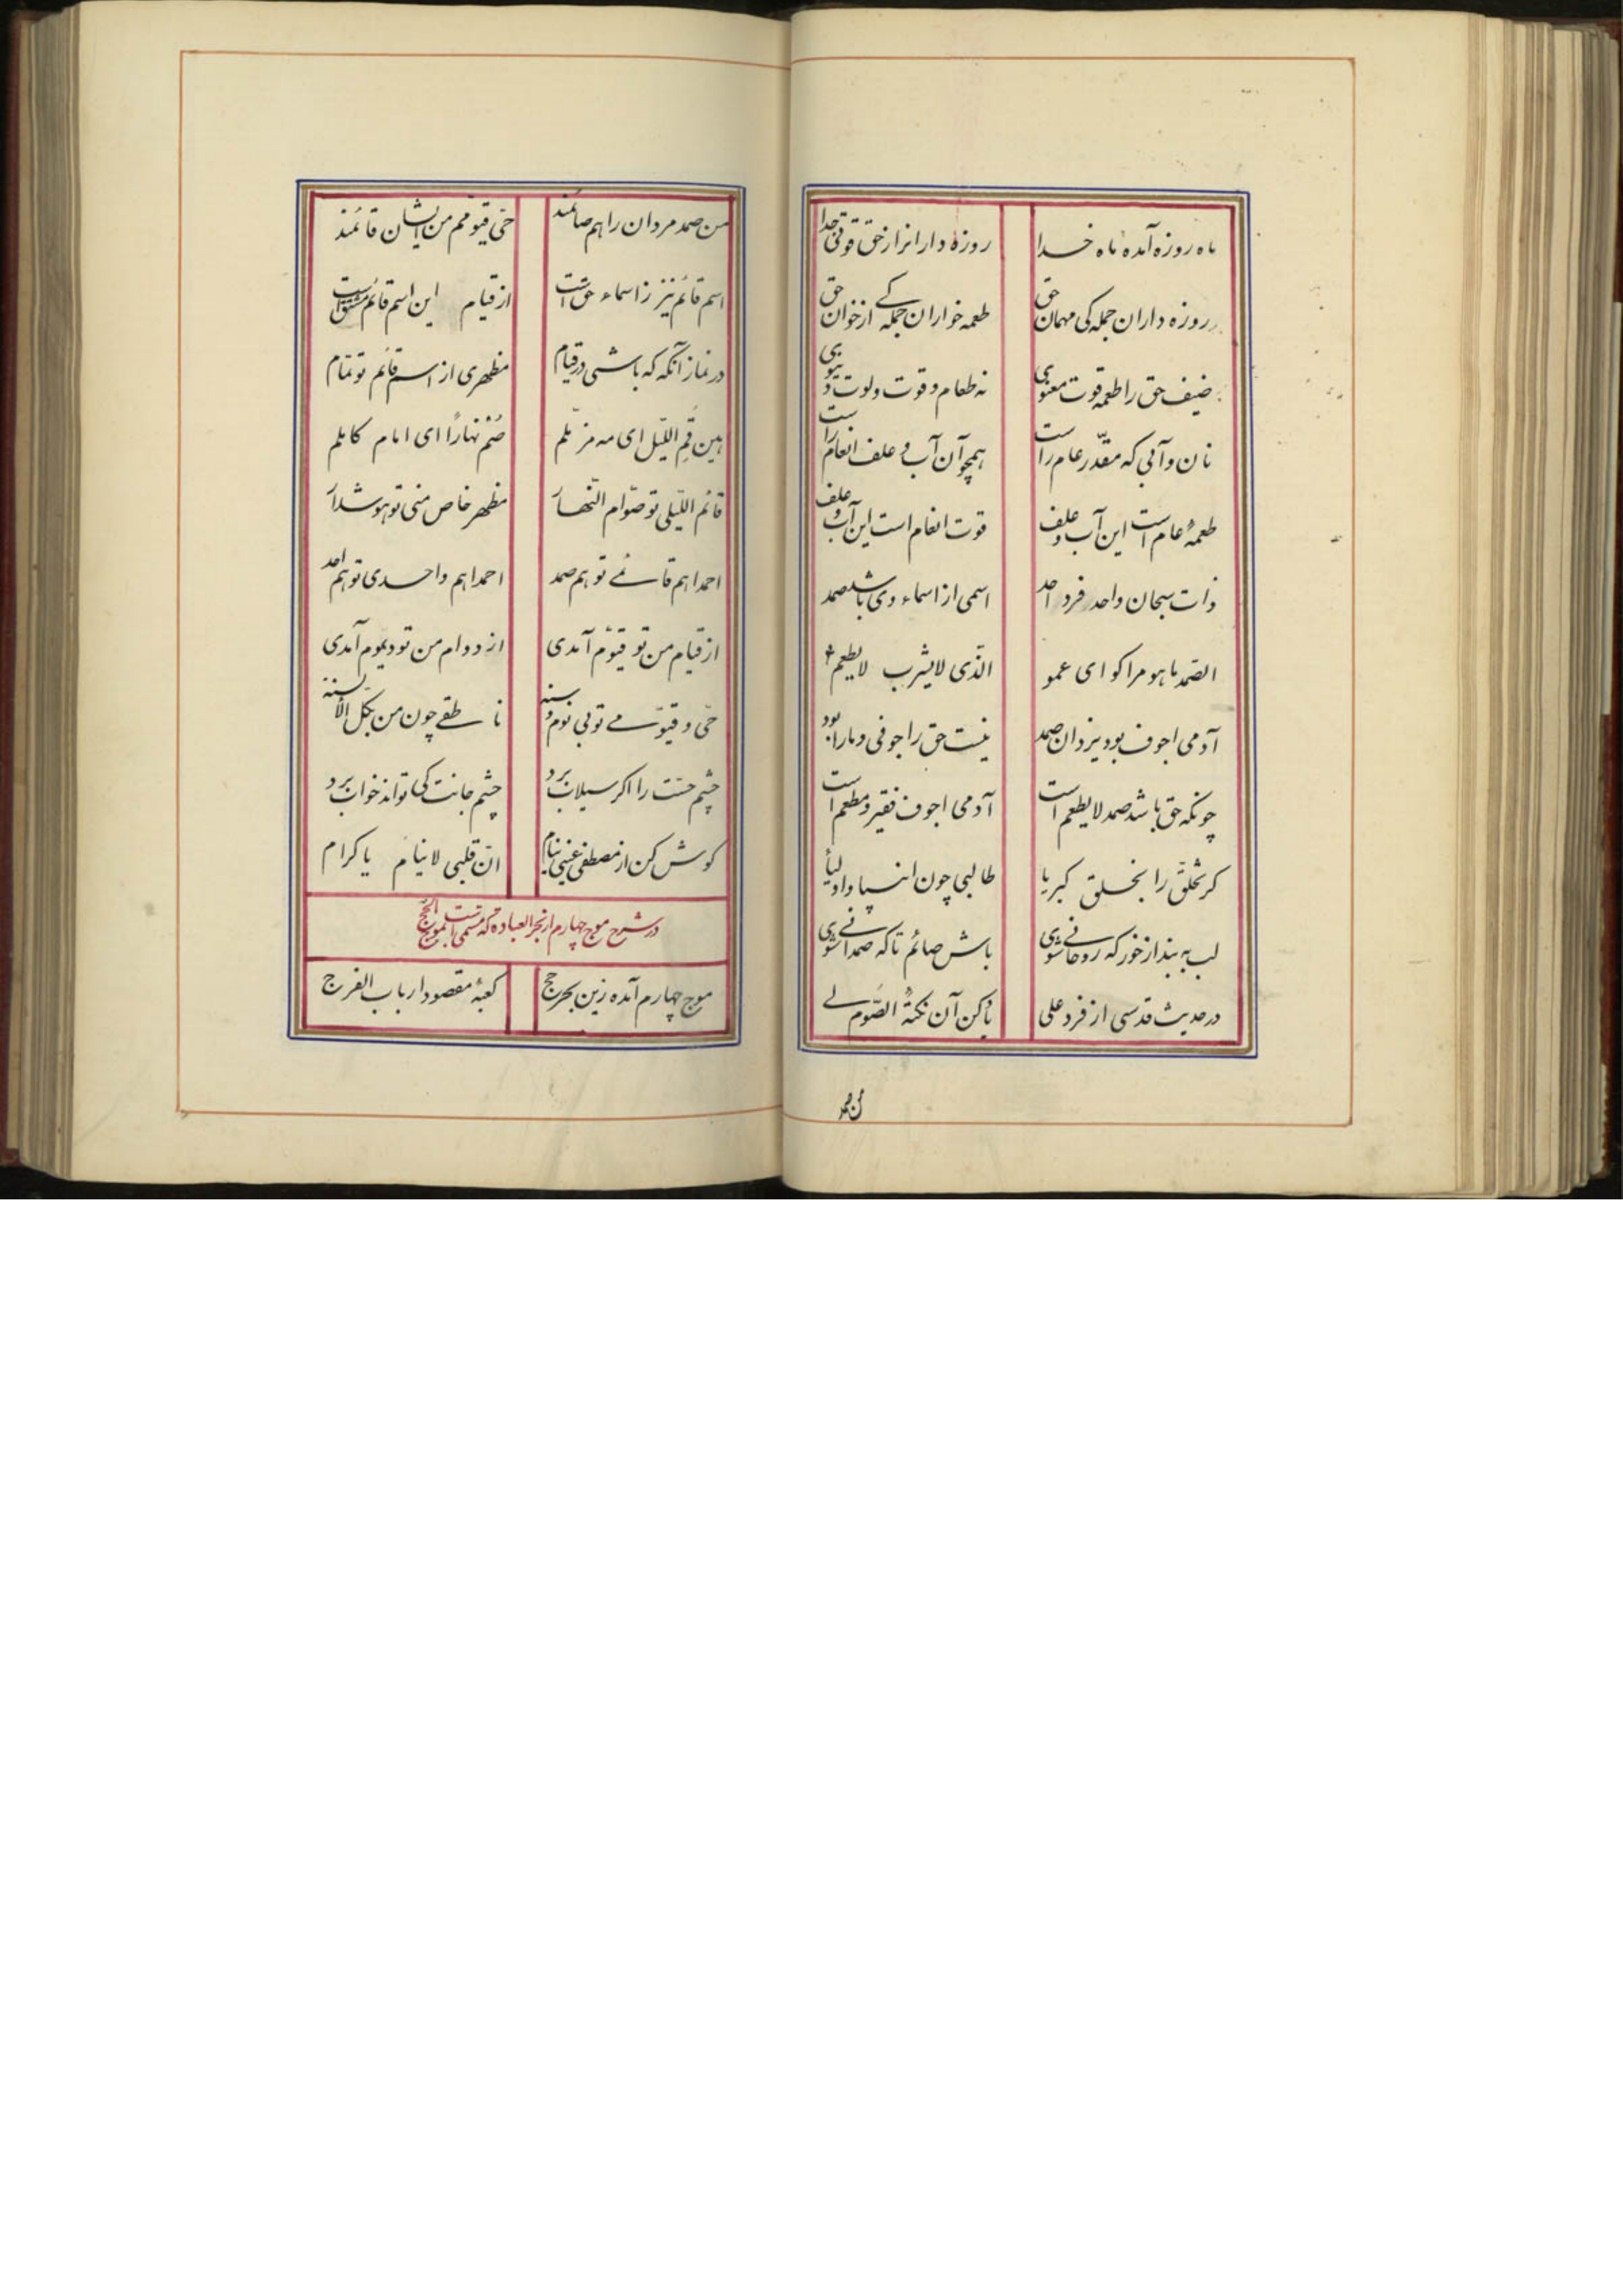 ماه روزه آمده ماه خدا روزه دارانرا ز حق قوتی جدا
روزه داران جملکی مهمان حق طعمه خواران جملکے از خوان حق
ضیف حق را طعمه قوت معنوی نه طعام و قوت و لوت دنیوی
نان و آبی که مقدّر عام راست همچو آن آب و علف انعام راست
طعمهٔ عام است این آب و علف قوت انعام است این آب و علف
ذات سبحان واحد فرد احد اسمی از اسماء وی باشد صمد
الصّمد ما هو مرا کو ای عمو الّذی لا یشرب لا یطعم
آدمی اجوف بود یزدان صمد نیست حق را جوفی و ما را بود
چونکه حق باشد صمد لا یطعم است آدمی اجوف فقیر و مطعم است
کر تخلّق را بخلق کبریا طالبی چون انبیا و اولیا
لب به بند از خور که روحانے شوی باش صائم تا که صمدانے شوی
در حدیث قدسی از فرد علی یاد کن آن نکتهٔ الصّوم لے
من صمد
من صمد مردان را هم صائمند حیّ قیّومم من ایشان قائمند
اسم قائم نیز ز اسماء حق است از قیام این اسم قائم مشتق است
در نماز آنکه که باشی در قیام مظهری از اسم قائم تو تمام
هین قم اللّیل ای مه مزّملم صم نهاراً ای امام کاملم
قائم اللّیلی تو صوّام النّهار مظهر خاص منی تو هوشدار
احمدا هم قائمے تو هم صمد احمدا هم واحدی تو هم احد
از قیام من تو قیّوم آمدی از دوام من تو دیموم آمدی
حیّ و قیّومے تو بی نوم و سنه ناطقے چون من بکل الألسنة
چشم حسّت را اکر سیلاب برد چشم جانت کی تواند خواب برد
کوش کن از مصطفی عینی ینام انّ قلبی لا ینام یا کرام
در شرح موج چهارم از بحر العباده که مسمی است بموج الحجّ
موج چهارم آمده زین بحر حج کعبهٔ مقصود ارباب الفرج